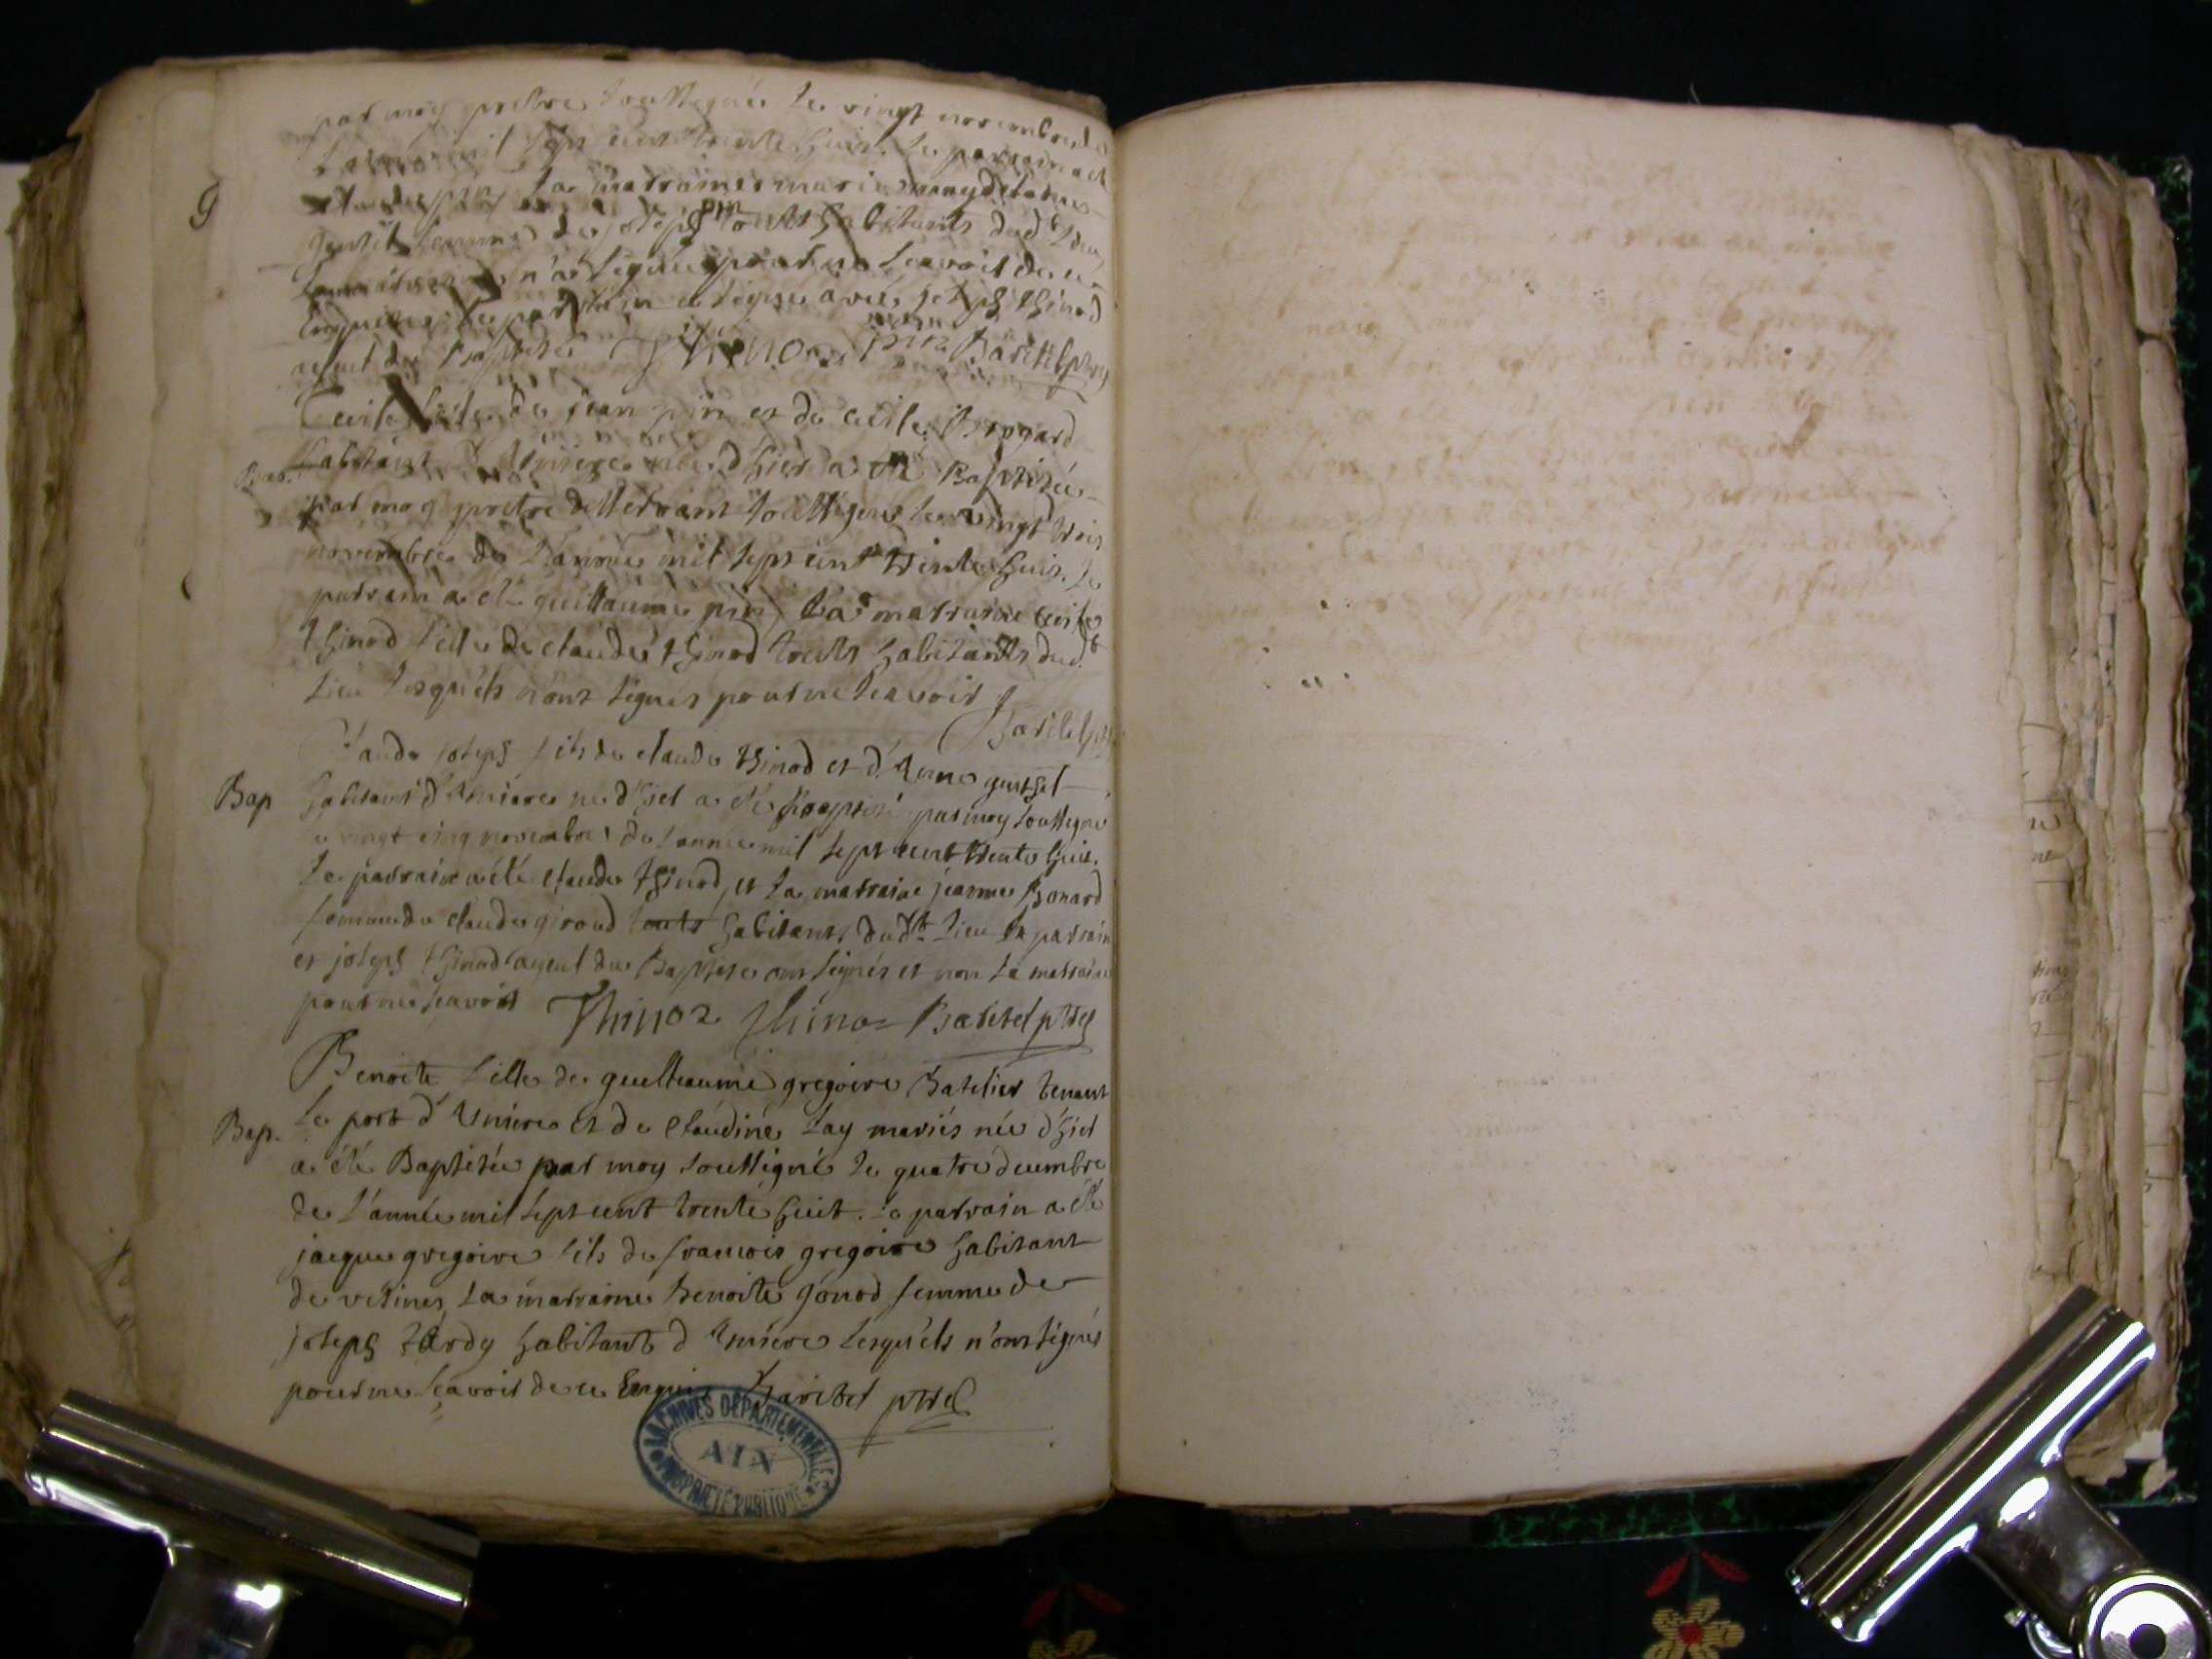 par moy prettre soussigné le vingt novembre de
L'année mil sept cent trente huit. Le parrain a été
pin, La marraine marie magdelaine
gentil femme de joseph pin touts habitants dud.t Lieu
La marraine n'a signée pour ne scavoir de ce
Enquise Le parrain a signé avec joseph thinod
ayeul du Baptisé Thinoz pin Baritel ptre
Cecile fille de jean pin et de cecile Bronard
Bap. habitants d'Uniere née d'hier a été Baptisée
par moy pretre desservant soussigné le vingt trois
novembre de L'année mil sept cent trente huit. Le
parrain a été guillaume pin, La marraine Cecile
thinod fille de claude thinod touts habitants dud.t
Lieu Lesquels n'ont signés pour ne scavoir
Baritel ptre
Claude joseph fils de claude thinod et d'Anne
Bap habitants d'Uniere né d'hier a été Baptisé par moy soussigné
Le vingt cinq novembre de L'année mil sept cent trente huit.
Le parrain a été claude thinod, et La marraine jeanne Bonard
femme de claude giroud touts habitants dud.t Lieu Le parrain
et joseph thinod ayeul du Baptisé ont signés et non La marraine
pour ne scavoir Thinoz Thinoz Baritel ptre
Benoite fille de guilleaume gregoire Batelier tenant
Bap. Le port d'Uniere et de Claudine Lay mariés née d'hier
a été Baptisée par moy soussigné le quatre decembre
de L'année mil sept cent trente huit. Le parrain a été
jacque gregoire fils de francois gregoire habitant
de vesines, La marraine Benoite gonod femme de
joseph tardy habitants d'Uniere Lesquels n'ont signés
pour ne scavoir de ce Enquis Baritel ptre
ARCHIVES DÉPARTEMENTALES
AIN
PROPRIÉTÉ PUBLIQUE